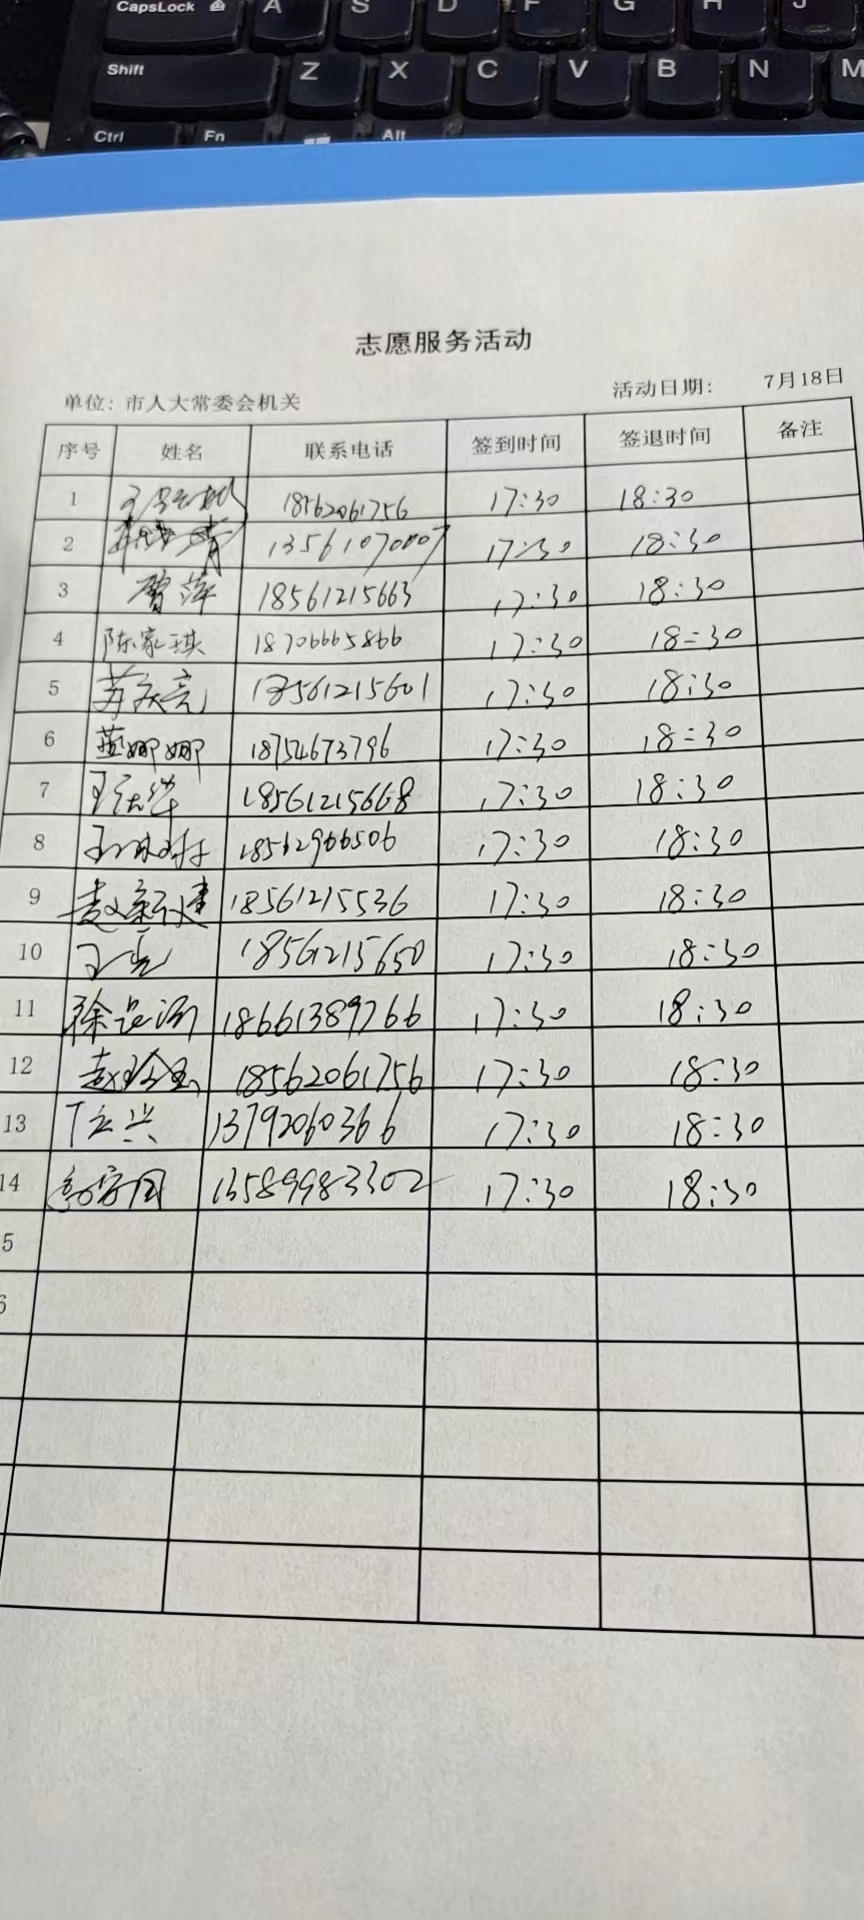 CapsLock A S D F G H J
Shift Z X C V B N M
Ctrl Fn Alt
志愿服务活动
单位: 市人大常委会机关 活动日期: 7月18日
序号 姓名 联系电话 签到时间 签退时间 备注
1 18562061756 17:30 18:30
2 13561070007 17:30 18:30
3 曾萍 18561215663 17:30 18:30
4 陈家琪 18706665866 17:30 18:30
5 13561215601 17:30 18:30
6 蓝娜娜 18754673796 17:30 18:30
7 18561215668 17:30 18:30
8 18562966506 17:30 18:30
9 赵新建 18561215536 17:30 18:30
10 王亮 18561215650 17:30 18:30
11 18661389766 17:30 18:30
12 18562061756 17:30 18:30
13 丁云兴 13792060366 17:30 18:30
14 13589983302 17:30 18:30
5
6